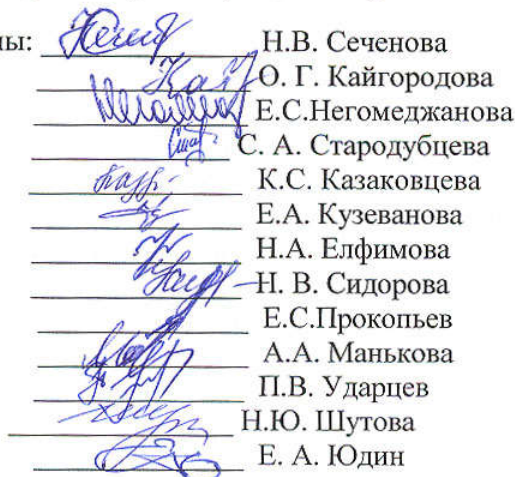 ны: Н.В. Сеченова
О. Г. Кайгородова
Е.С.Негомеджанова
С. А. Стародубцева
К.С. Казаковцева
Е.А. Кузеванова
Н.А. Елфимова
Н. В. Сидорова
Е.С.Прокопьев
А.А. Манькова
П.В. Ударцев
Н.Ю. Шутова
Е. А. Юдин